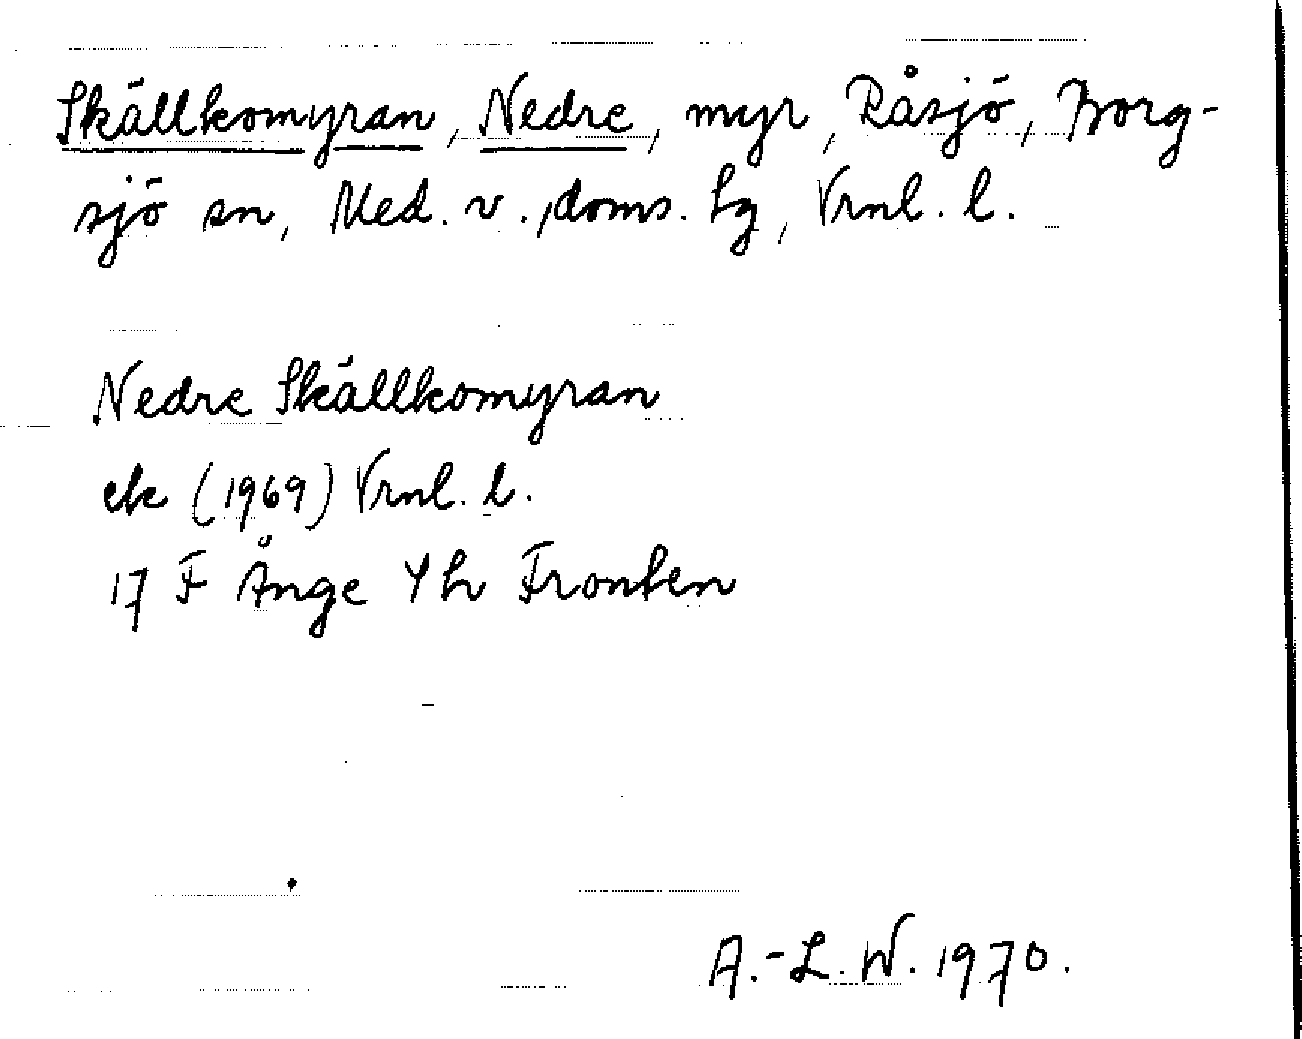 Skällkomyran, Nedre, myr, Råsjö, Borg-
sjö sn, Med. v., doms. hg, Vrnl. l.
Nedre Skällkomyran
ek (1969) Vrnl. l.
17 F Ånge Yh Fronten
A.-L. W. 1970.